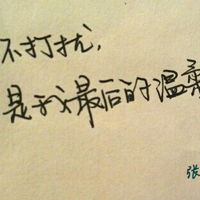 不打扰,
是我最后的温柔
张